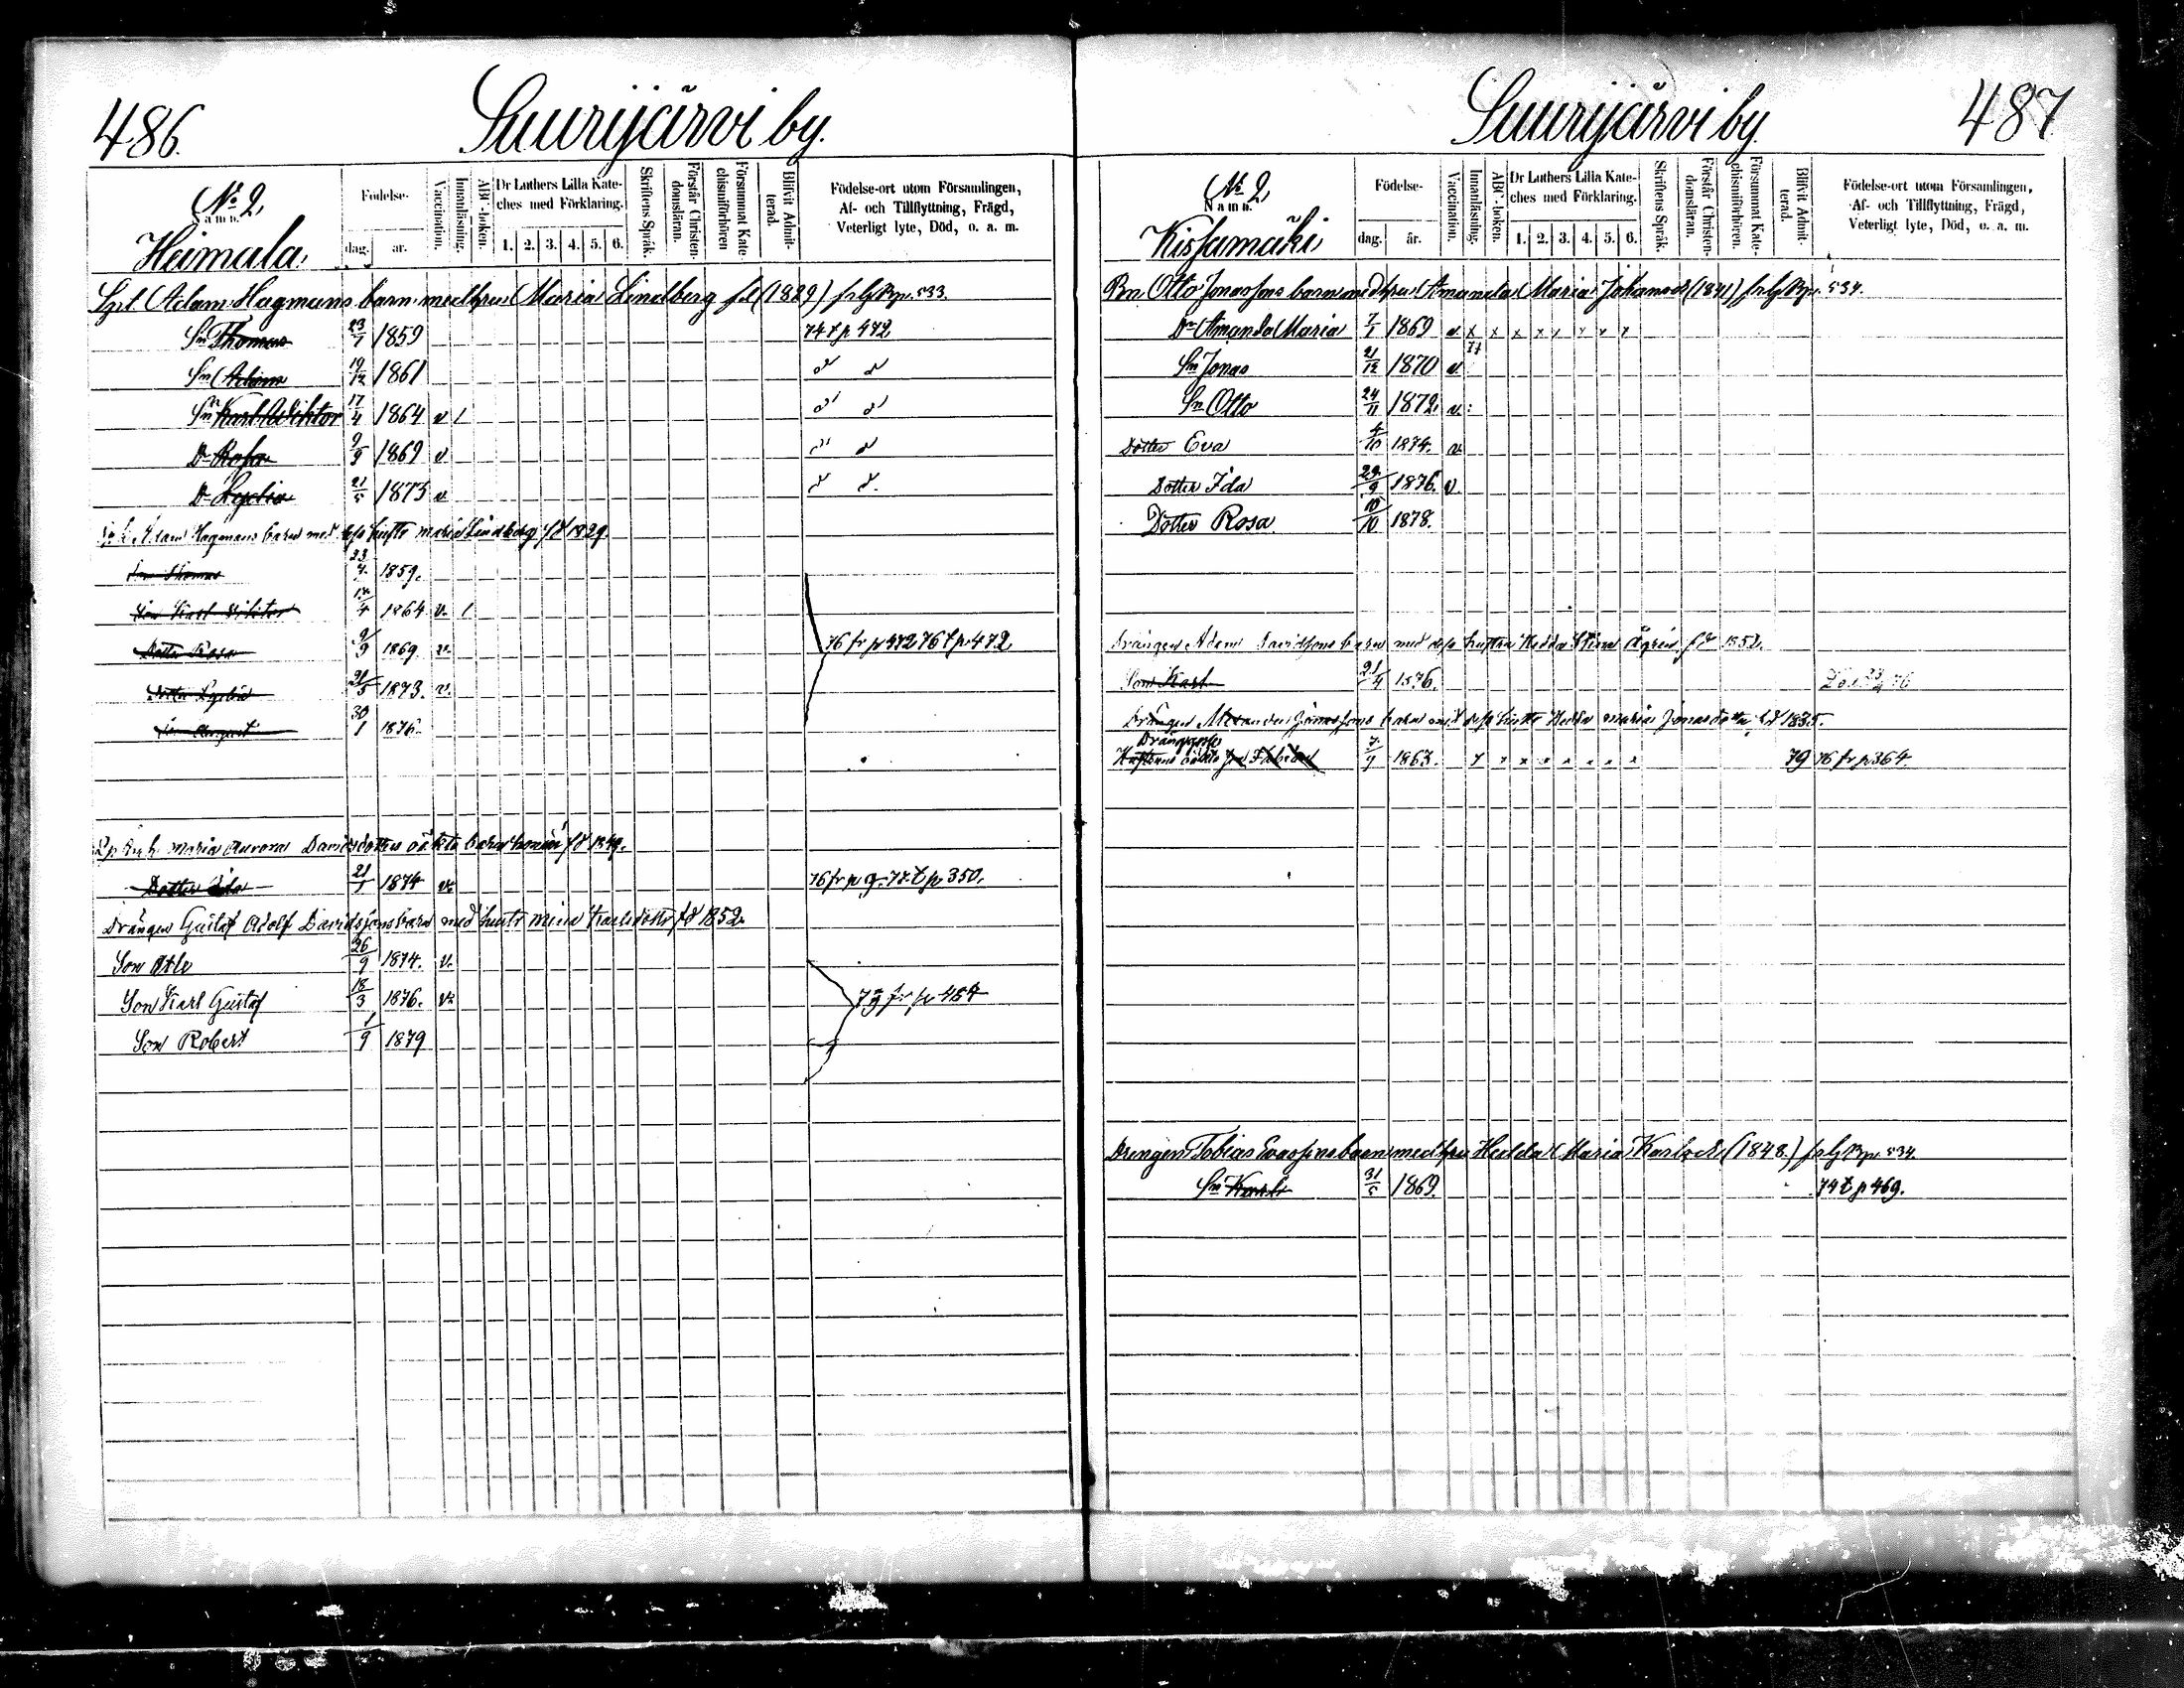 486.
Suurijärvi by.
No 2.
Namn.
Heimala.
Födelse-
dag. år.
Vaccination.
Innanläsning.
ABC-boken.
Dr Luthers Lilla Kate-
ches med Förklaring.
1. 2. 3. 4. 5. 6.
Skriftens Språk.
Förstår Christen-
domsläran.
Försummat Kate-
chismiförhören
Blifvit Admit-
terad.
Födelse-ort utom Församlingen,
Af- och Tillflyttning, Frägd,
Veterligt lyte, Död, o. a. m.
Adam Hagmans barn med hru Maria Lindberg fd (1829) 533.
Sn Thomas 23/1 1859 74 t p 472
Sn Adam 19/12 1861 d d
Sn Karl Wiktor 17/4 1864 v / d d
Dr Rosa 9/9 1869 v d d
Dr 21/5 1873 v d d
Adam Hagmans barn med dess hustr Maria Lindberg fd 1829.
Son Thomas 23 1859.
Son Karl Viktor 17/4 1864 v. /
Dotter Rosa 9/9 1869. v. 76 fr p 472 76 t p 472
Dotter 21/5 1873. v.
Son August 30/1 1876.
Maria Aurora Davidsdotter oäkta barn
Dotter Ida 21/1 1874 v. 76 fr p 9. 77 t p 350.
Drängen Gustaf Adolf Davidssons barn med hustr Mina Karlsdotter fd 1852.
Son 26/9 1874. v.
Son Karl Gustaf 18/3 1876. v. fr p 484
Son Robert 1/9 1879
Suurijärvi by.
487
No 2.
Namn.
Kissamäki
Födelse-
dag. år.
Vaccination.
Innanläsning.
ABC-boken.
Dr Luthers Lilla Kate-
ches med Förklaring.
1. 2. 3. 4. 5. 6.
Skriftens Språk.
Förstår Christen-
domsläran.
Försummat Kate-
chismiförhören.
Blifvit Admit-
terad.
Födelse-ort utom Församlingen,
Af- och Tillflyttning, Frägd,
Veterligt lyte, Död, o. a. m.
Otto Jonassons barn med hru Amanda Maria Johansd (1841) 534.
Dr Amanda Maria 7/1 1869 v x x x x x x x x
77
Sn Jonas 21/12 1870 v
Sn Otto 24/11 1872. v.
Dotter Eva 4/10 1874. v.
Dotter Ida 29/9 1876. v.
Dotter Rosa 10/10 1878.
Drängen Adam Davidssons barn med dess hustru Hedda Stina fd 1852.
Son Karl 21/4 1876.
Drängen Alexander Jonassons barn med dess hustr Hedda Maria Jonasdotter fd 1835.
Dränggosse
Hustruns oäkta son 1863. x x x x x x x x 79 76 fr p 364.
Drengen Tobias barn med hru Hedda Maria Karlsd (1848.) 534.
Sn Karl 31/5 1869. 74 t p 469.